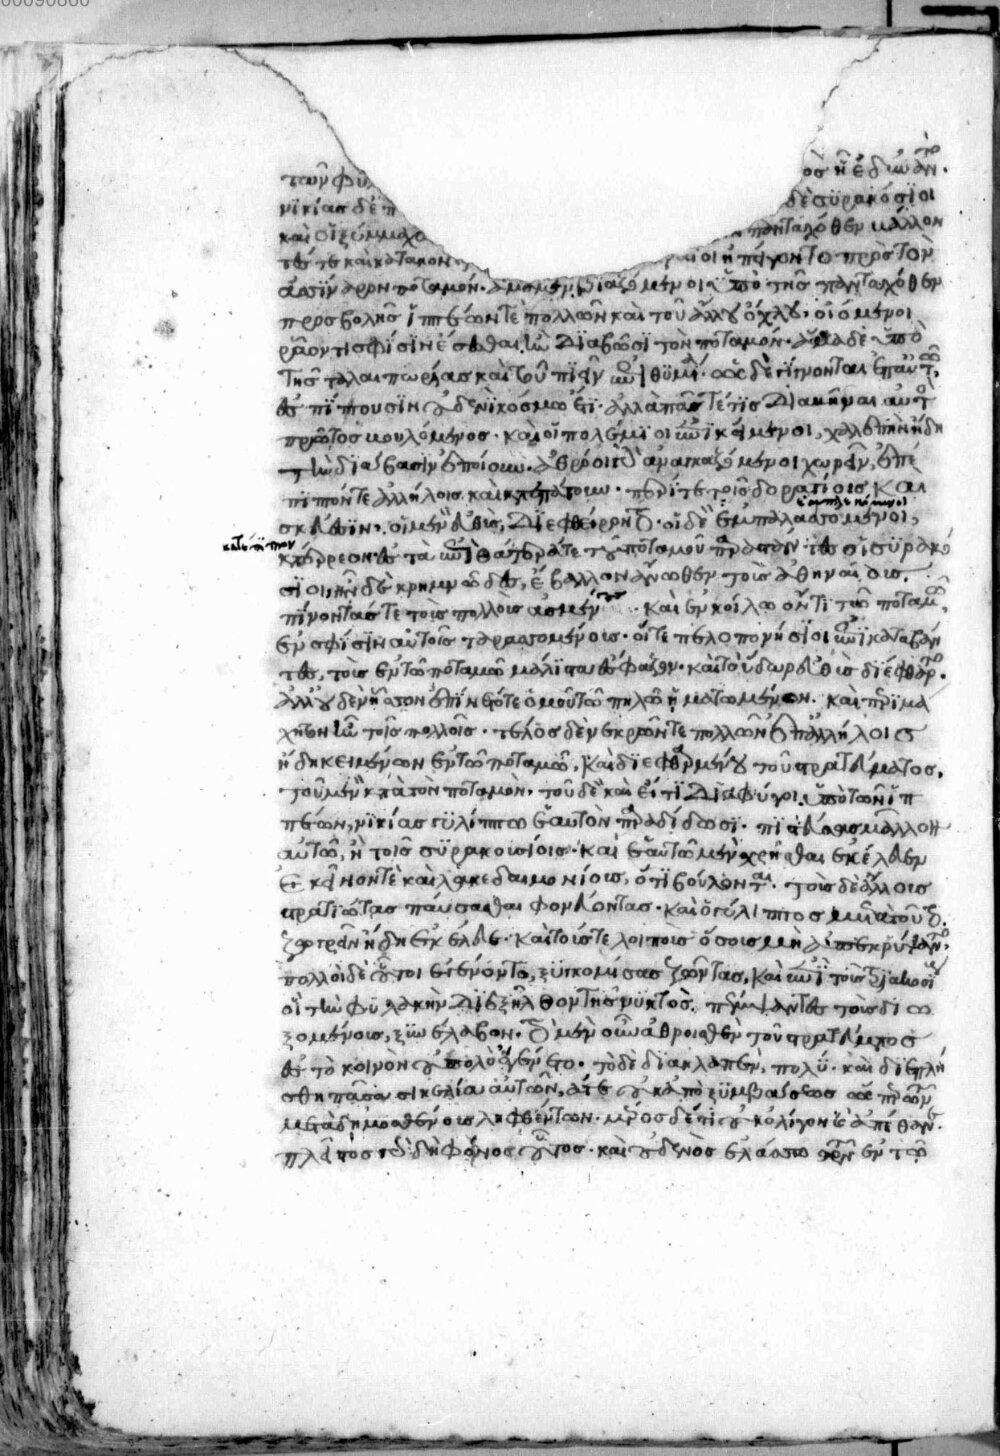 00090860
τῶν φυ ος ἢ ἐδίωκον.
νικίας δὲ π δὲ συρακόσιοι
καὶ οἱ ξύμμαχο πανταχόθεν βάλλον
τές τε καὶ κατακον οἱ ἠπείγοντο πρὸς τὸν
ἀσσίναρον ποταμόν. ἅμα μὲν βιαζόμενοι ὑπὸ τῆς πανταχόθεν
προσβολῆς ἱππέων τὲ πολλῶν καὶ τοῦ ἄλλου ὄχλου, οἰόμενοι
ρᾶόν τι σφίσιν ἔσεσθαι ἢν διαβῶσι τὸν ποταμόν. ἅμα δὲ ὑπὸ
τῆς ταλαιπωρίας καὶ τοῦ πιεῖν ἐπιθυμίᾳ. ὡς δὲ γίγνονται ἐπ' αὐτῷ,
ἐσπίπτουσιν οὐδενὶ κόσμω ἔτι. ἀλλὰ πᾶς τέ τις διαβῆναι αὐτὸς
πρῶτος βουλόμενος. καὶ οἱ πολέμιοι ἐπικείμενοι, χαλεπὴν ἤδη
τὴν διάβασιν ἐποίουν. ἀθρόοι γὰρ ἀναγκαζόμενοι χωρεῖν, ἐπέ
πιπτόν τε ἀλλήλοις καὶ κατεπάτουν. περί τε τοῖς δορατίοις καὶ
σκεύεσιν, οἱ μὲν εὐθὺς, διεφθείροντο. οἱ δὲ ἐμπαλασσόμενοι,
κατέρρεον. ἐς τὰ ἐπὶ θάτερά τε τοῦ ποταμοῦ παραστάντες οἱ συρακό
σιοι, ἦν δὲ κρημνῶδες, ἔβαλλον ἄνωθεν τοὺς ἀθηναίους.
πίνοντάς τε τοὺς πολλοὺς ἀσμένους καὶ ἐν κοίλω ὄντι τῶ ποταμῷ,
ἐν σφίσιν αὐτοῖς ταρασσομένους. οἵ τε πελοποννήσιοι ἐπικαταβάν
τες, τοὺς ἐν τῶ ποταμῶ μάλιστα ἔσφαζον. καὶ τὸ ὕδωρ εὐθὺς διέφθαρτο.
ἀλλ' οὐδὲν ἧσσον ἐπίνετό τε ὁμοῦ τῶ πηλῶ ἡματωμένον. καὶ περιμά
χητον ἦν τοῖς πολλοῖς. τέλος δὲ νεκρῶν τε πολλῶν ἐπ' ἀλλήλοις
ἤδη κειμένων ἐν τῶ ποταμῶ, καὶ διεφθαρμένου τοῦ στρατεύματος,
τοῦ μὲν κατὰ τὸν ποταμόν. τοῦ δὲ καὶ εἴ τι διαφύγοι ὑπὸ τῶν ἱπ
πέων, νικίας γυλίππω ἑαυτὸν παραδίδωσι. πιστεύσας μᾶλλον
αὐτῶ, ἢ τοῖς συρακοσίοις. καὶ ἑαυτῶ μὲν χρῆσθαι ἐκέλευεν
ἐκεῖνόν τὲ καὶ λακεδαιμονίους, ὅτι βούλονται. τοὺς δὲ ἄλλους
στρατιώτας παύσασθαι φονεύοντας. καὶ ὁ γύλιππος μετὰ τοῦτο
ζωγρεῖν ἤδη ἐκέλευε. καὶ τούς τε λοιποὺς ὅσους μὴ ἀπεκρύψαντο,
πολλοὶ δὲ οὗτοι ἐγένοντο, ξυνεκόμισαν ζῶντας, καὶ ἐπὶ τοὺς τριακοσίους
οἳ τὴν φυλακὴν διεξῆλθον τῆς νυκτὸς, πέμψαντες τοὺς διω
ξομένους, ξυνέλαβον. τὸ μὲν οὖν ἀθροισθὲν τοῦ στρατεύματος
ἐς τὸ κοινὸν οὐ πολὺ ἐγένετο. τὸ δὲ διακλαπὲν, πολύ. καὶ διεπλή
σθη πᾶσα σικελία αὐτῶν, ἅτε οὐκ ἀπὸ ξυμβάσεως ὡς περ τῶν
μετὰ δημοσθένους ληφθέντων. μέρος δέ τι οὐκ ὀλίγον καὶ ἀπέθανε.
πλεῖστος γὰρ δὴ φόνος οὗτος. καὶ οὐδενὸς ἐλάσσω τῶν ἐν τῶ